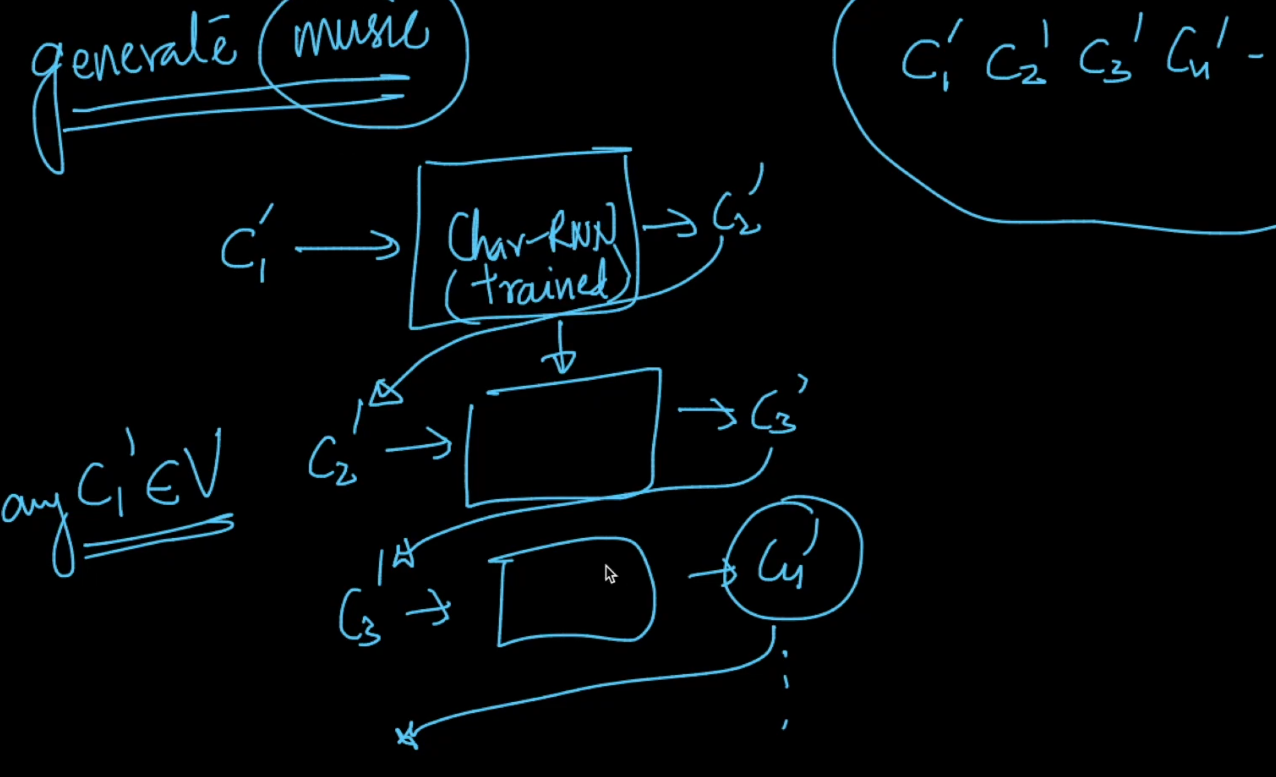 generate music
C₁' C₂' C₃' C₄' -
C₁' → Char-RNN → C₂'
(trained)
C₂' → → C₃'
any C₁' ∈ V
C₃' → → C₄'